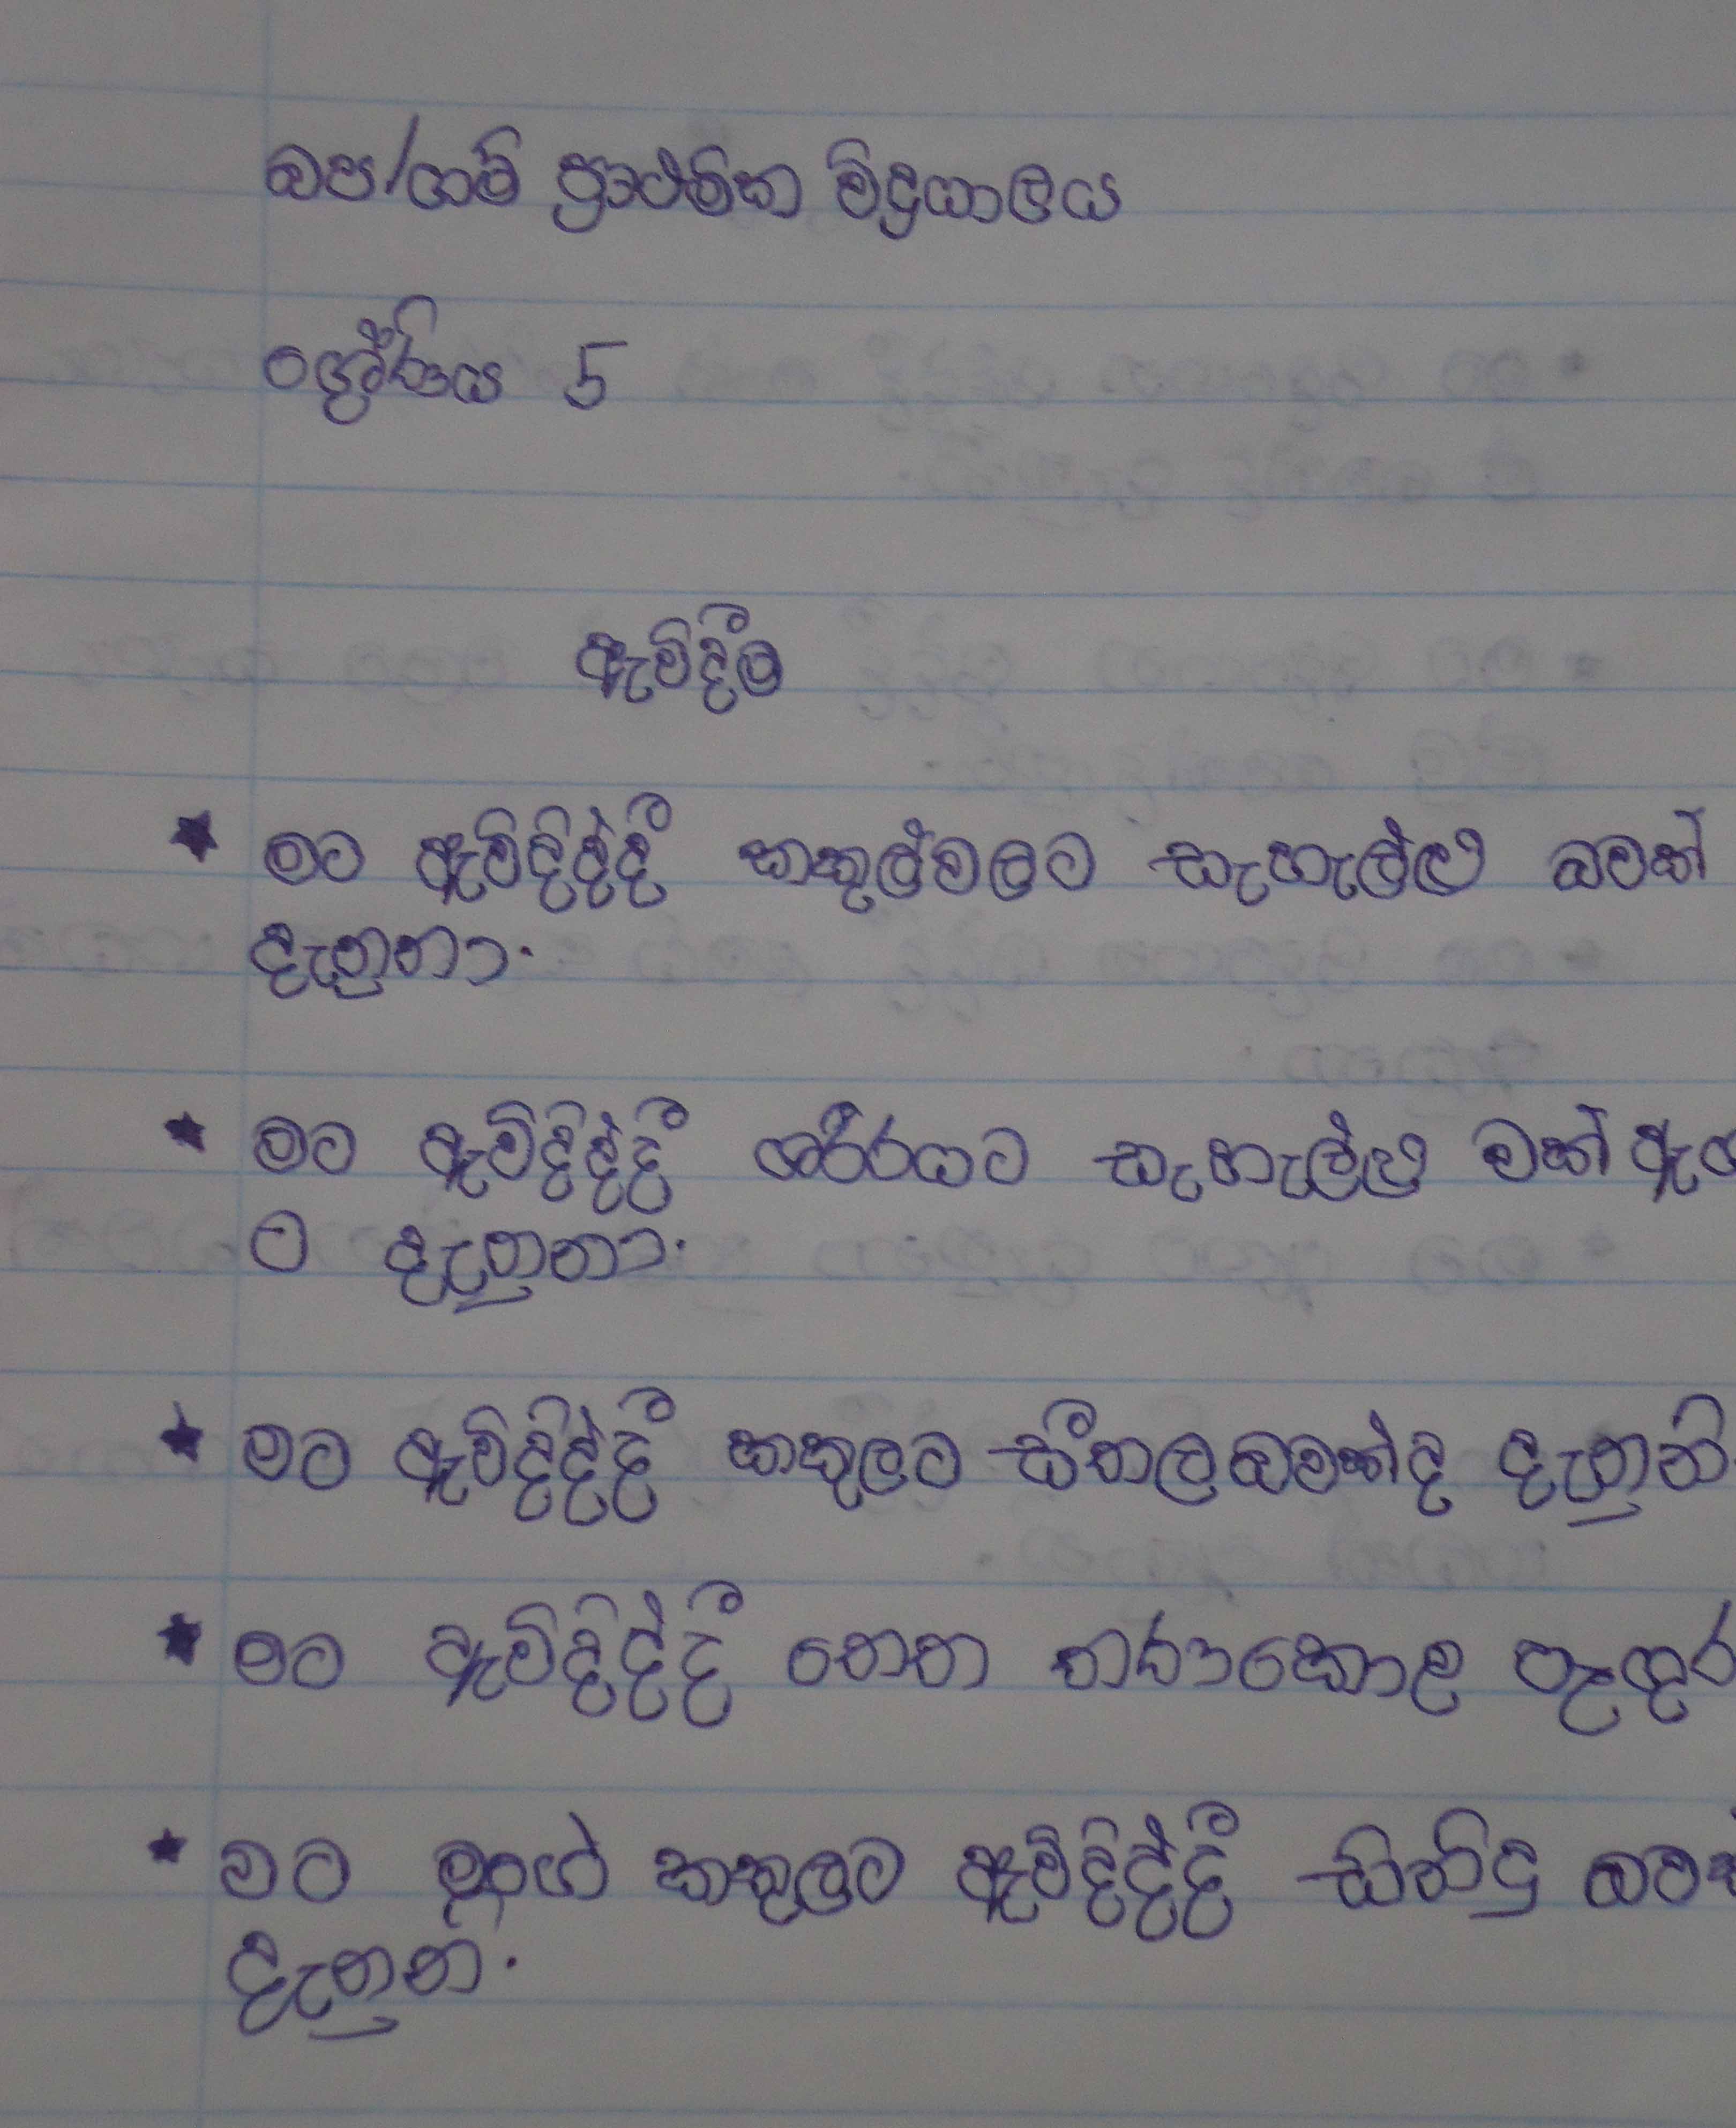 බප/ගම් ප්‍රාථමික විද්‍යාලය
ශ්‍රේණිය 5
ඇවිදීම
මට ඇවිදිද්දී කකුල්වලට සැහැල්ලු බවක්
දැනුනා.
මට ඇවිදිද්දී ශරීරයට සැහැල්ලු වක් ඇග
ට දැනුනා.
මට ඇවිදිද්දී කකුලට සීතල බවක්ද දැනුනි
මට ඇවිදිද්දී තෙත තණකොළ පෑගුර
මට මගේ කකුලට ඇවිදිද්දී සිනිදු බව
දැනුනි.